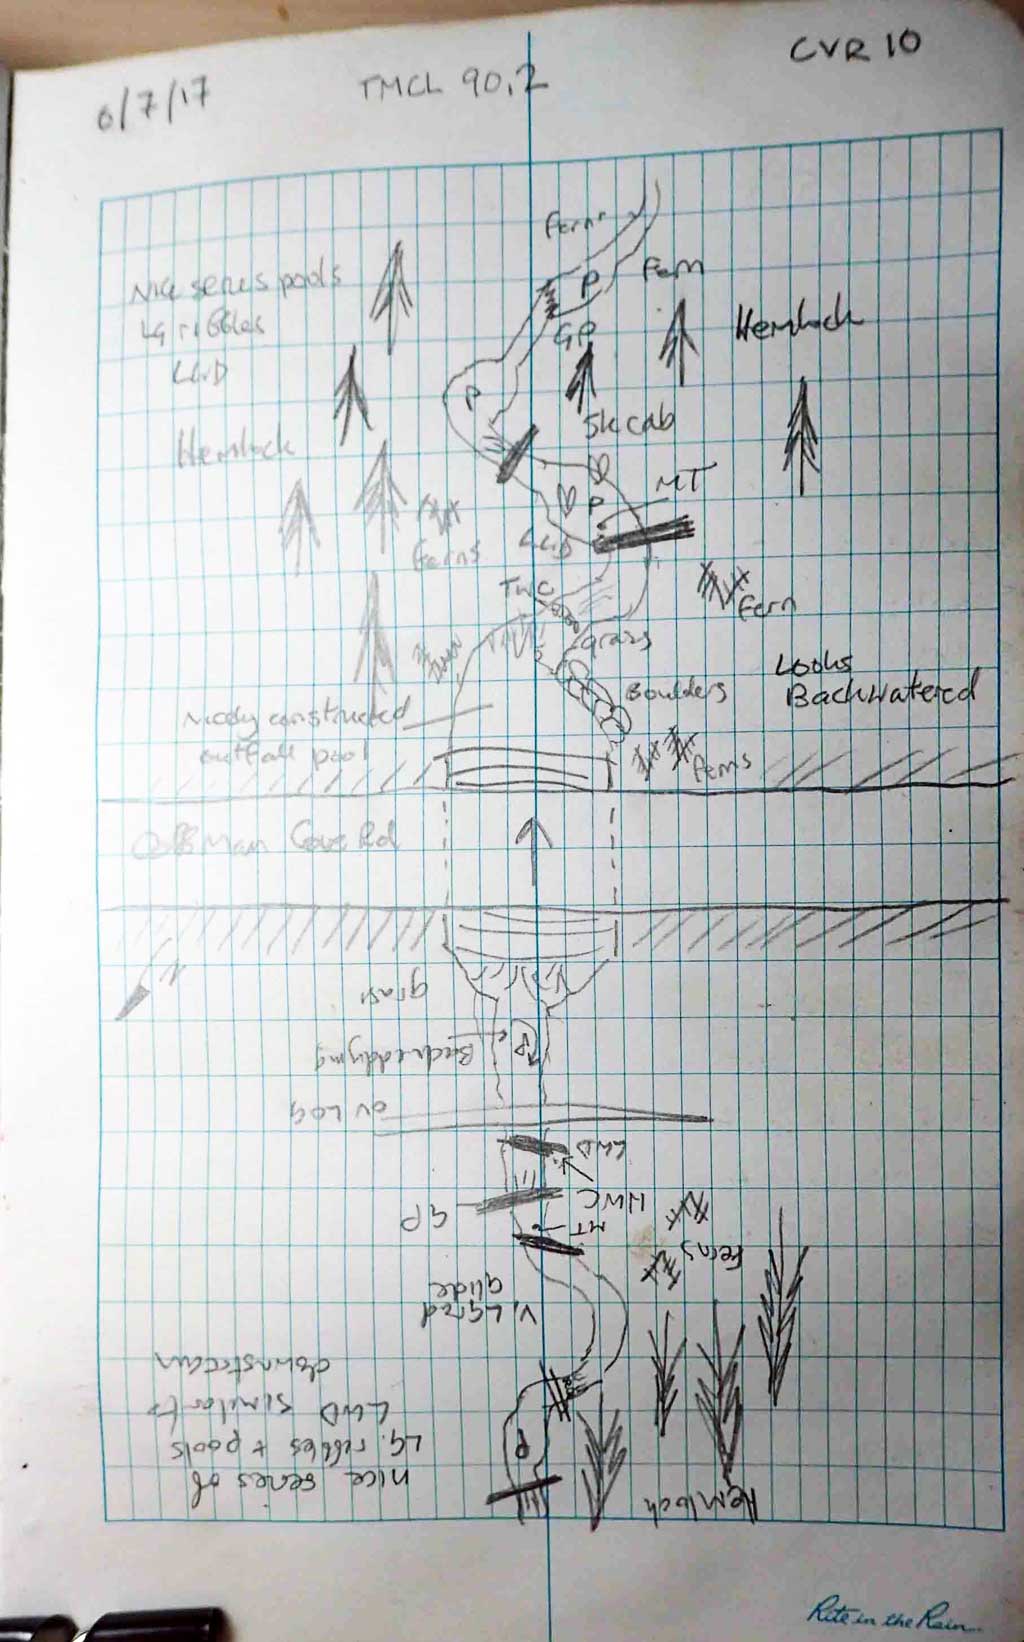 6/7/17
TMCL 90.2
CVR 10
Ferns
Nice series pools
LG riffles
LWD
P
Fern
GP
Hemlock
P
Sk cab
Hemlock
MT
P
LWD
Ferns
TWC
Fern
grass
Looks
Backwatered
Boulders
Nicely constructed
outfall pool
Ferns
Coffman Cove Rd
N
grass
P
Backeddying
OV LOG
LWD
HWC
GP
MT
Ferns
V. LGrad
glide
nice series of
LG. riffles + pools
LWD similar to
downstream
P
Hemlock
Rite in the Rain